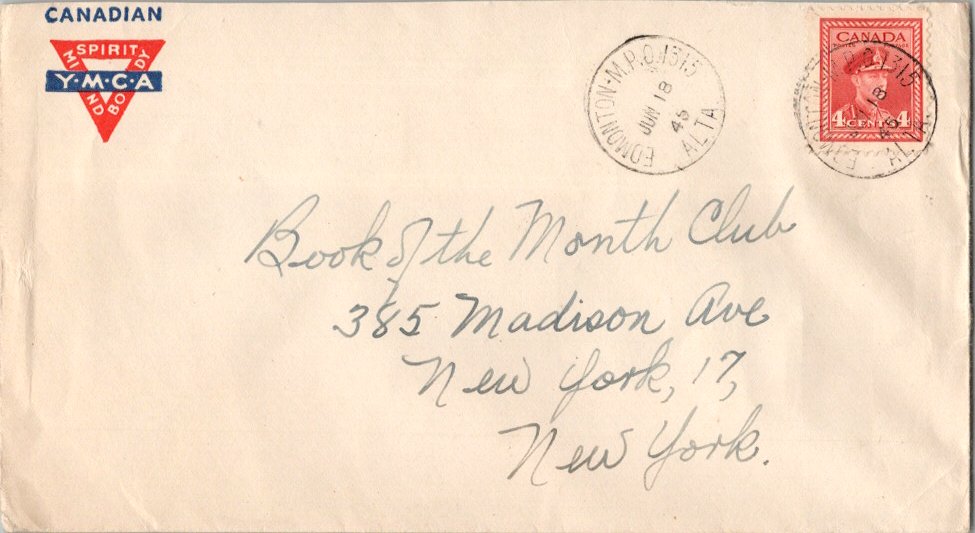 CANADIAN
SPIRIT
MIND
BODY
Y·M·C·A
EDMONTON-M.P.O.1315
JUN 18
45
ALTA.
CANADA
POSTES POSTAGE
4 CENTS 4
EDMONTON-M.P.O.1315
JUN 18
45
ALTA.
Book of the Month Club
385 Madison Ave
New York, 17,
New York.